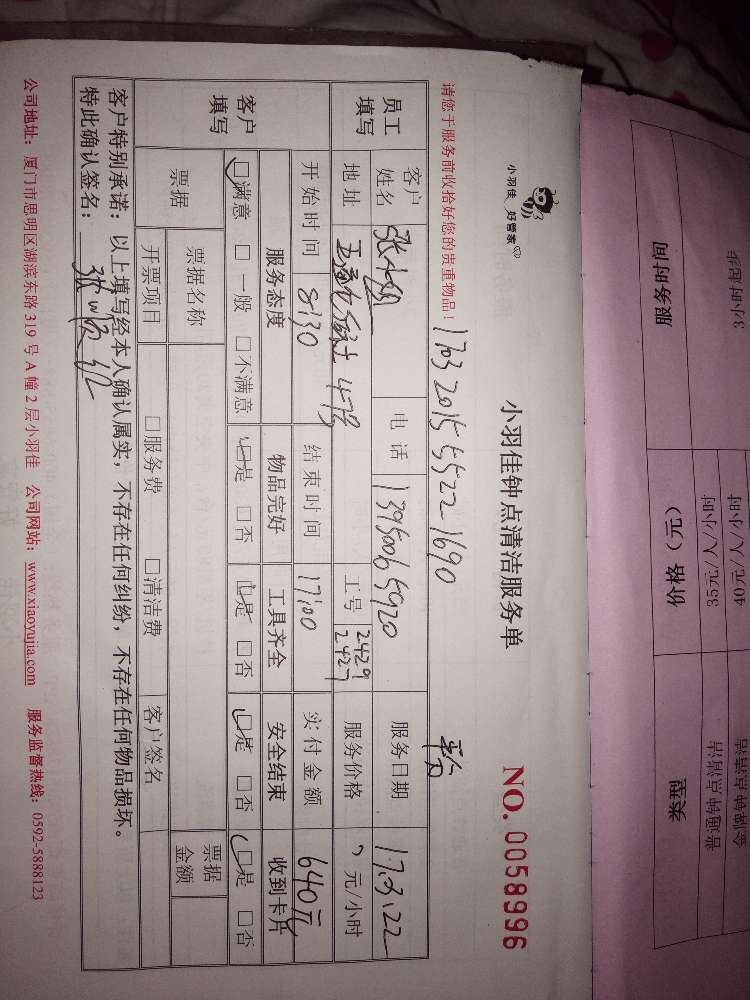 小羽佳 好管家
小羽佳钟点清洁服务单 NO. 0058996
请您于服务前收拾好您的贵重物品！ 1703 2015 5522 1690
员工填写 客户姓名 张小姐 电话 13950065920 服务日期 17.3.22
地址 4-7B 工号 2429 2427 服务价格 元/小时
开始时间 8:30 结束时间 17:00 实付金额 640元
客户填写 服务态度 物品完好 工具齐全 安全结束 收到卡片
□满意 □一般 □不满意 □是 □否 □是 □否 □是 □否 □是 □否
票据 票据名称 票据金额
开票项目 □服务费 □清洁费 客户签名
客户特别承诺：以上填写经本人确认属实，不存在任何纠纷，不存在任何物品损坏。
特此确认签名：
公司地址：厦门市思明区湖滨东路319号A幢2层小羽佳 公司网站：www.xiaoyujia.com 服务监督热线：0592-5888123
服务时间 价格（元） 类型
3小时起步 35元/人/小时 普通钟点清洁
40元/人/小时 金牌钟点清洁